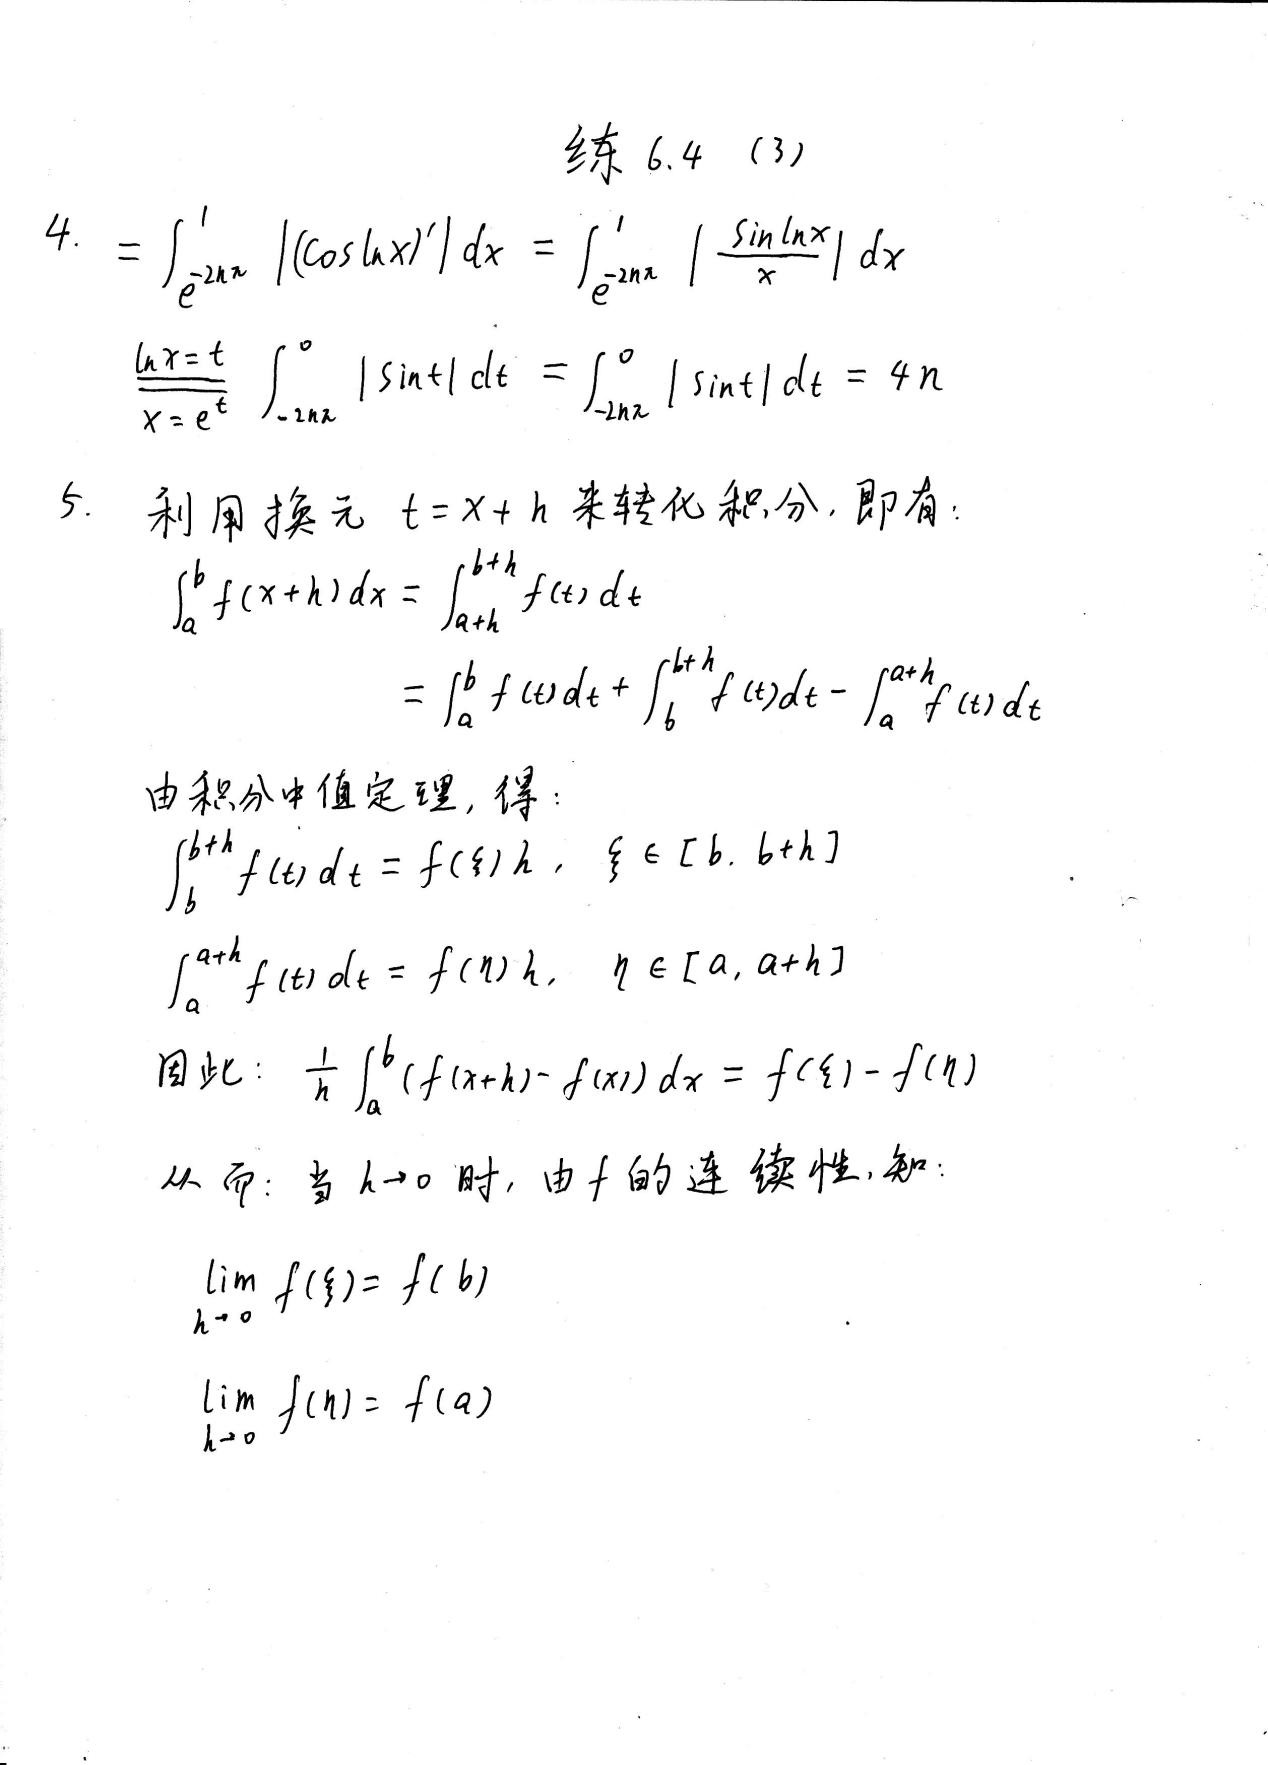 练 6.4 (3)
4. = ∫_{e^{-2nπ}}^{1} |(cos ln x)'| dx = ∫_{e^{-2nπ}}^{1} |\frac{sin ln x}{x}| dx
\frac{ln x = t}{x = e^t} ∫_{-2nπ}^{0} |sin t| dt = ∫_{-2nπ}^{0} |sin t| dt = 4n
5. 利用换元 t = x + h 来转化积分, 即有:
∫_a^b f(x+h) dx = ∫_{a+h}^{b+h} f(t) dt
= ∫_a^b f(t) dt + ∫_b^{b+h} f(t) dt - ∫_a^{a+h} f(t) dt
由积分中值定理, 得:
∫_b^{b+h} f(t) dt = f(ξ) h, ξ ∈ [b. b+h]
∫_a^{a+h} f(t) dt = f(η) h, η ∈ [a, a+h]
因此: \frac{1}{h} ∫_a^b (f(x+h) - f(x)) dx = f(ξ) - f(η)
从而: 当 h→0 时, 由 f 的连续性, 知:
lim_{h→0} f(ξ) = f(b)
lim_{h→0} f(η) = f(a)